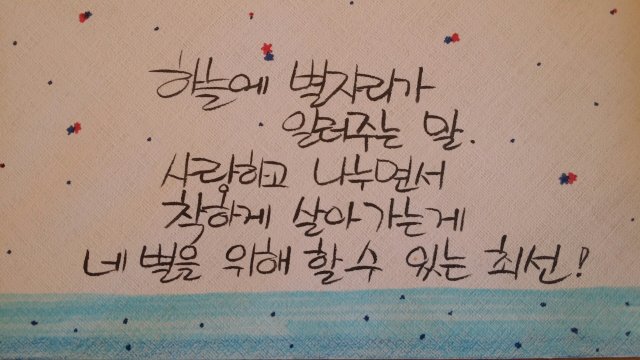 하늘에 별자리가
일러주는 말.
사랑하고 나누면서
착하게 살아가는게
네 별을 위해 할 수 있는 최선!